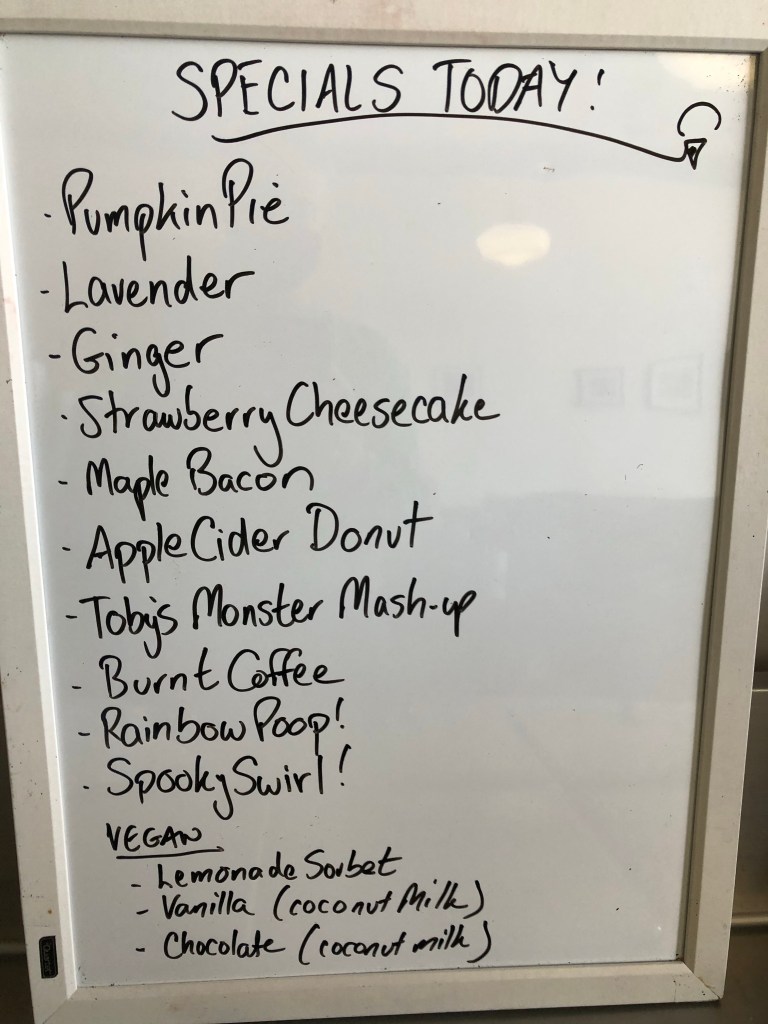 SPECIALS TODAY!
· Pumpkin Pie
- Lavender
- Ginger
· Strawberry Cheesecake
- Maple Bacon
· Apple Cider Donut
- Toby's Monster Mash-up
- Burnt Coffee
- Rainbow Poop!
· Spooky Swirl!
VEGAN
- Lemonade Sorbet
- Vanilla (coconut Milk)
- Chocolate (coconut milk)